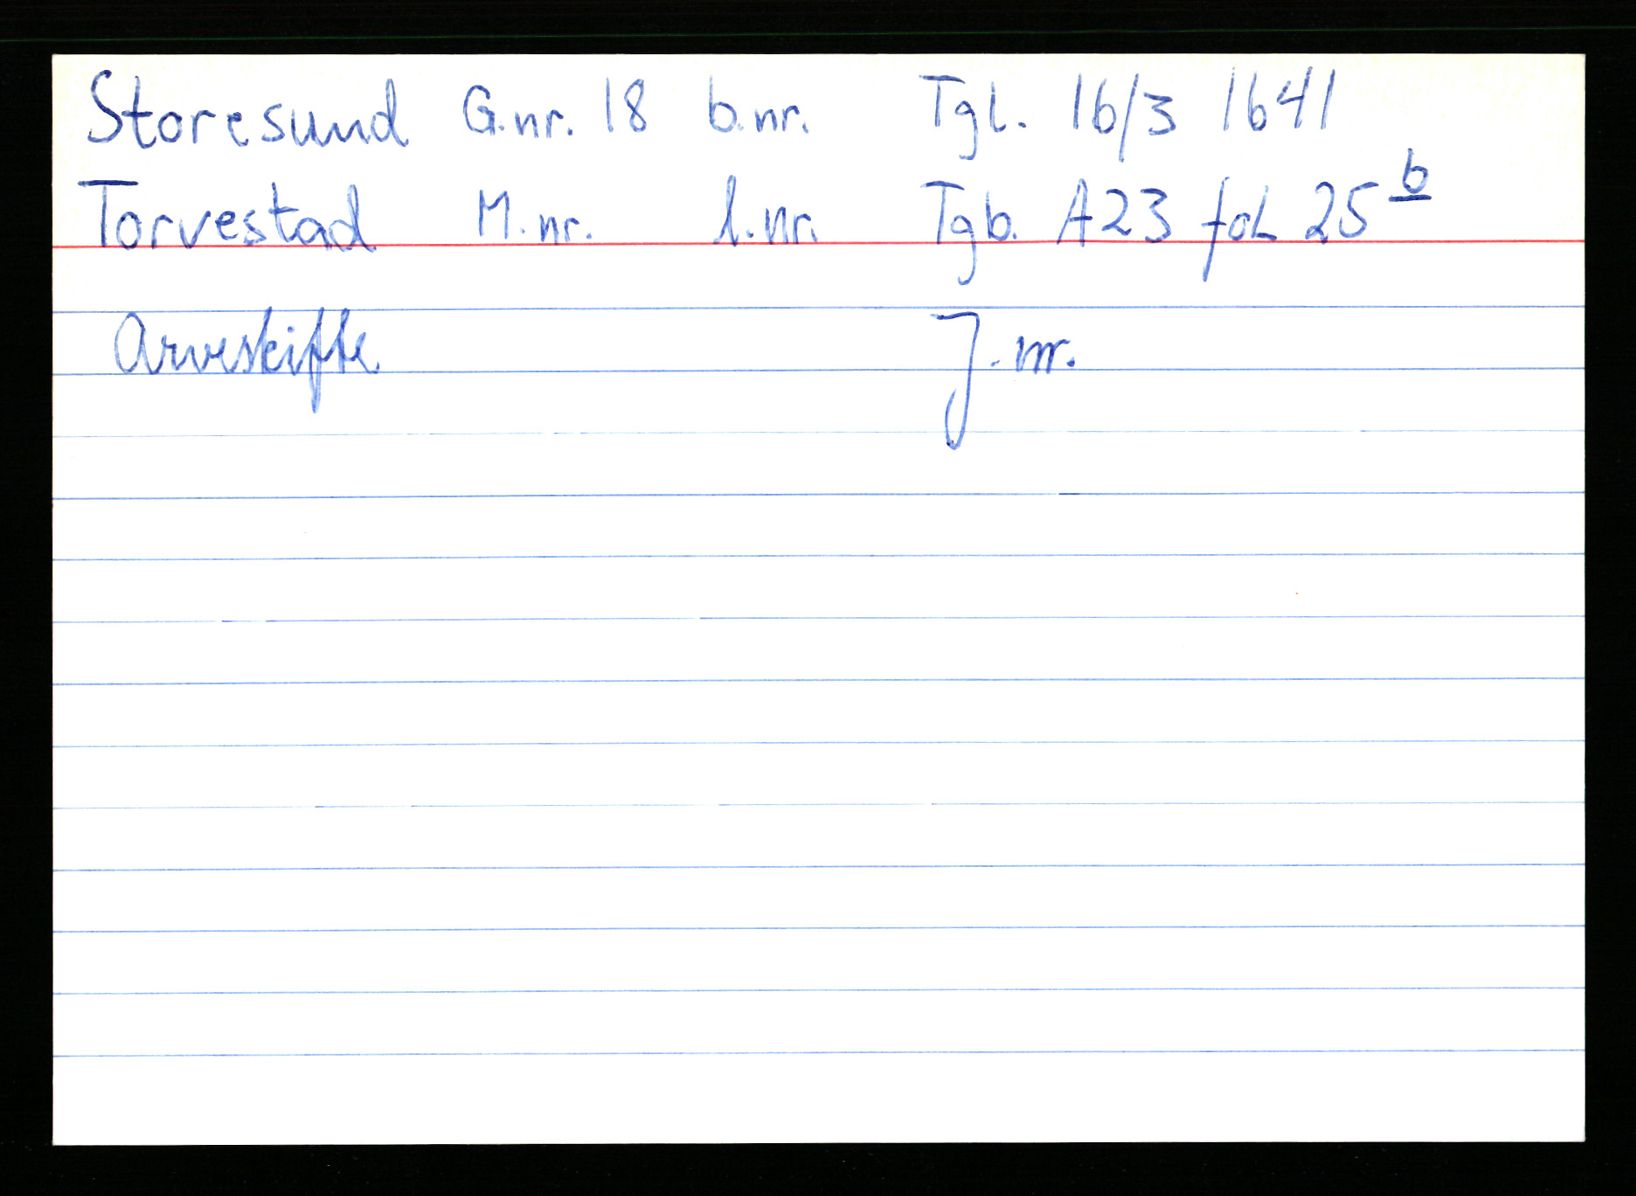 Storesund G.nr. 18 b.nr. Tgl. 16/3 1641
Torvestad M.nr. l.nr. Tgb. A23 fol 25 b
Arveskifte J.nr.